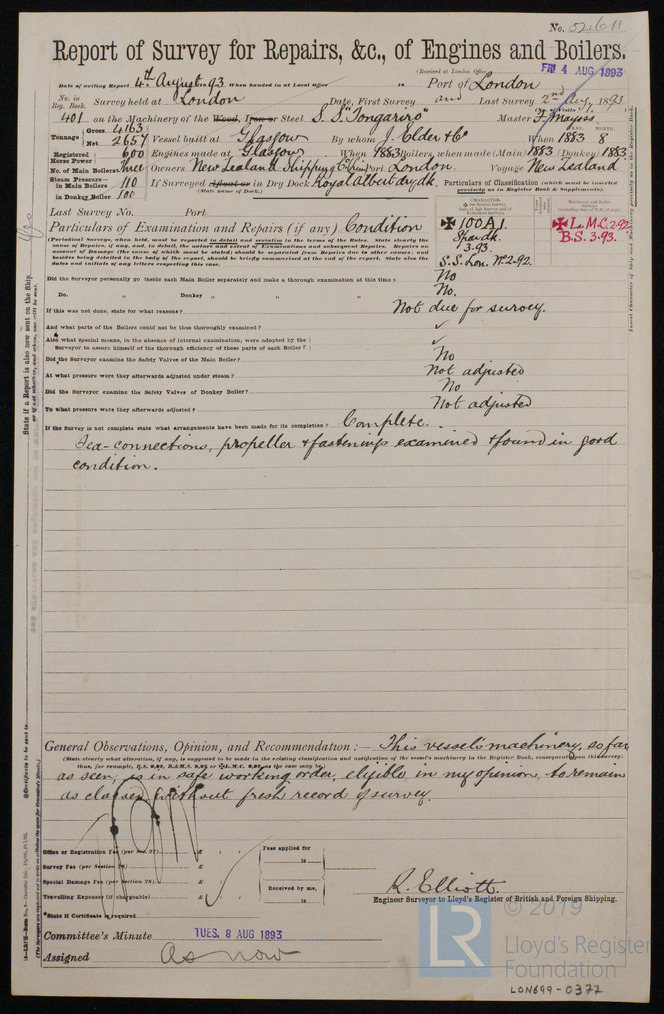 No. 52611
Report of Survey for Repairs, &c., of Engines and Boilers.
(Received at London Office FRI 4 AUG 1893
Date of writing Report 4th August 1893 When handed in at Local Office to Port of London
No. in Reg. Book. Survey held at London Date, First Survey and Last Survey 2nd Aug, 1893
401 on the Machinery of the Wood, Iron or Steel S.S. "Tongariro" Master
Tonnage Gross 4163 Net 2657 Vessel built at Glasgow By whom J. Elder & Co When 1883 8
YEAR. MONTH.
Registered Horse Power 600 Engines made at Glasgow When 1883 Boilers, when made (Main) 1883 (Donkey) 1883
No. of Main Boilers Three Owners New Zealand Shipping Co Lim Port London. Voyage New Zealand
Steam Pressure in Main Boilers 110 If Surveyed Afloat or in Dry Dock Royal Albert dry dk.
(State name of Dock.)
in Donkey Boiler 100
Particulars of Classification (which must be inserted precisely as in Register Book & Supplements).
Last Survey No. Port
✠ 100A1.
Spar dk.
3.93.
S.S. Lon. No. 2-92.
✠ L.M.C. 2.92
B.S. 3.93.
Particulars of Examination and Repairs (if any) Condition
(Periodical Surveys, when held, must be reported in detail and seriatim in the terms of the Rules. State clearly the
Did the Surveyor personally go inside each Main Boiler separately and make a thorough examination at this time? No
Do. " Donkey " " " ? No.
If this was not done, state for what reasons? Not due for survey.
And what parts of the Boilers could not be thus thoroughly examined? ✓
Also what special means, in the absence of internal examination, were adopted by the Surveyor to assure himself of the thorough efficiency of those parts of each Boiler? ✓
Did the Surveyor examine the Safety Valves of the Main Boiler? No
At what pressure were they afterwards adjusted under steam? Not adjusted
Did the Surveyor examine the Safety Valves of Donkey Boiler? No
To what pressure were they afterwards adjusted? Not adjusted
If the Survey is not complete state what arrangements have been made for its completion? Complete.
Sea-connections, propeller & fastenings examined & found in good
condition.
General Observations, Opinion, and Recommendation:— This vessel's machinery, so far
(State clearly what alteration, if any, is suggested to be made in the existing classification and notification of the vessel's machinery in the Register Book, consequent upon this survey;
as seen, is in safe working order, eligible, in my opinion, to remain
as classed without fresh record of survey.
Office or Registration Fee (per Sec. 27) £ : :
Survey Fee (per Section 28) £ : :
Special Damage Fee (per section 28) £ : :
Travelling Expenses (if chargeable) £ : :
*State if Certificate is required
Fees applied for
18
Received by me,
18
R. Elliott.
Engineer Surveyor to Lloyd's Register of British and Foreign Shipping.
Committee's Minute TUES. 8 AUG 1893
Assigned As now
LR
© 2019
Lloyd's Register
Foundation
LON699-0377